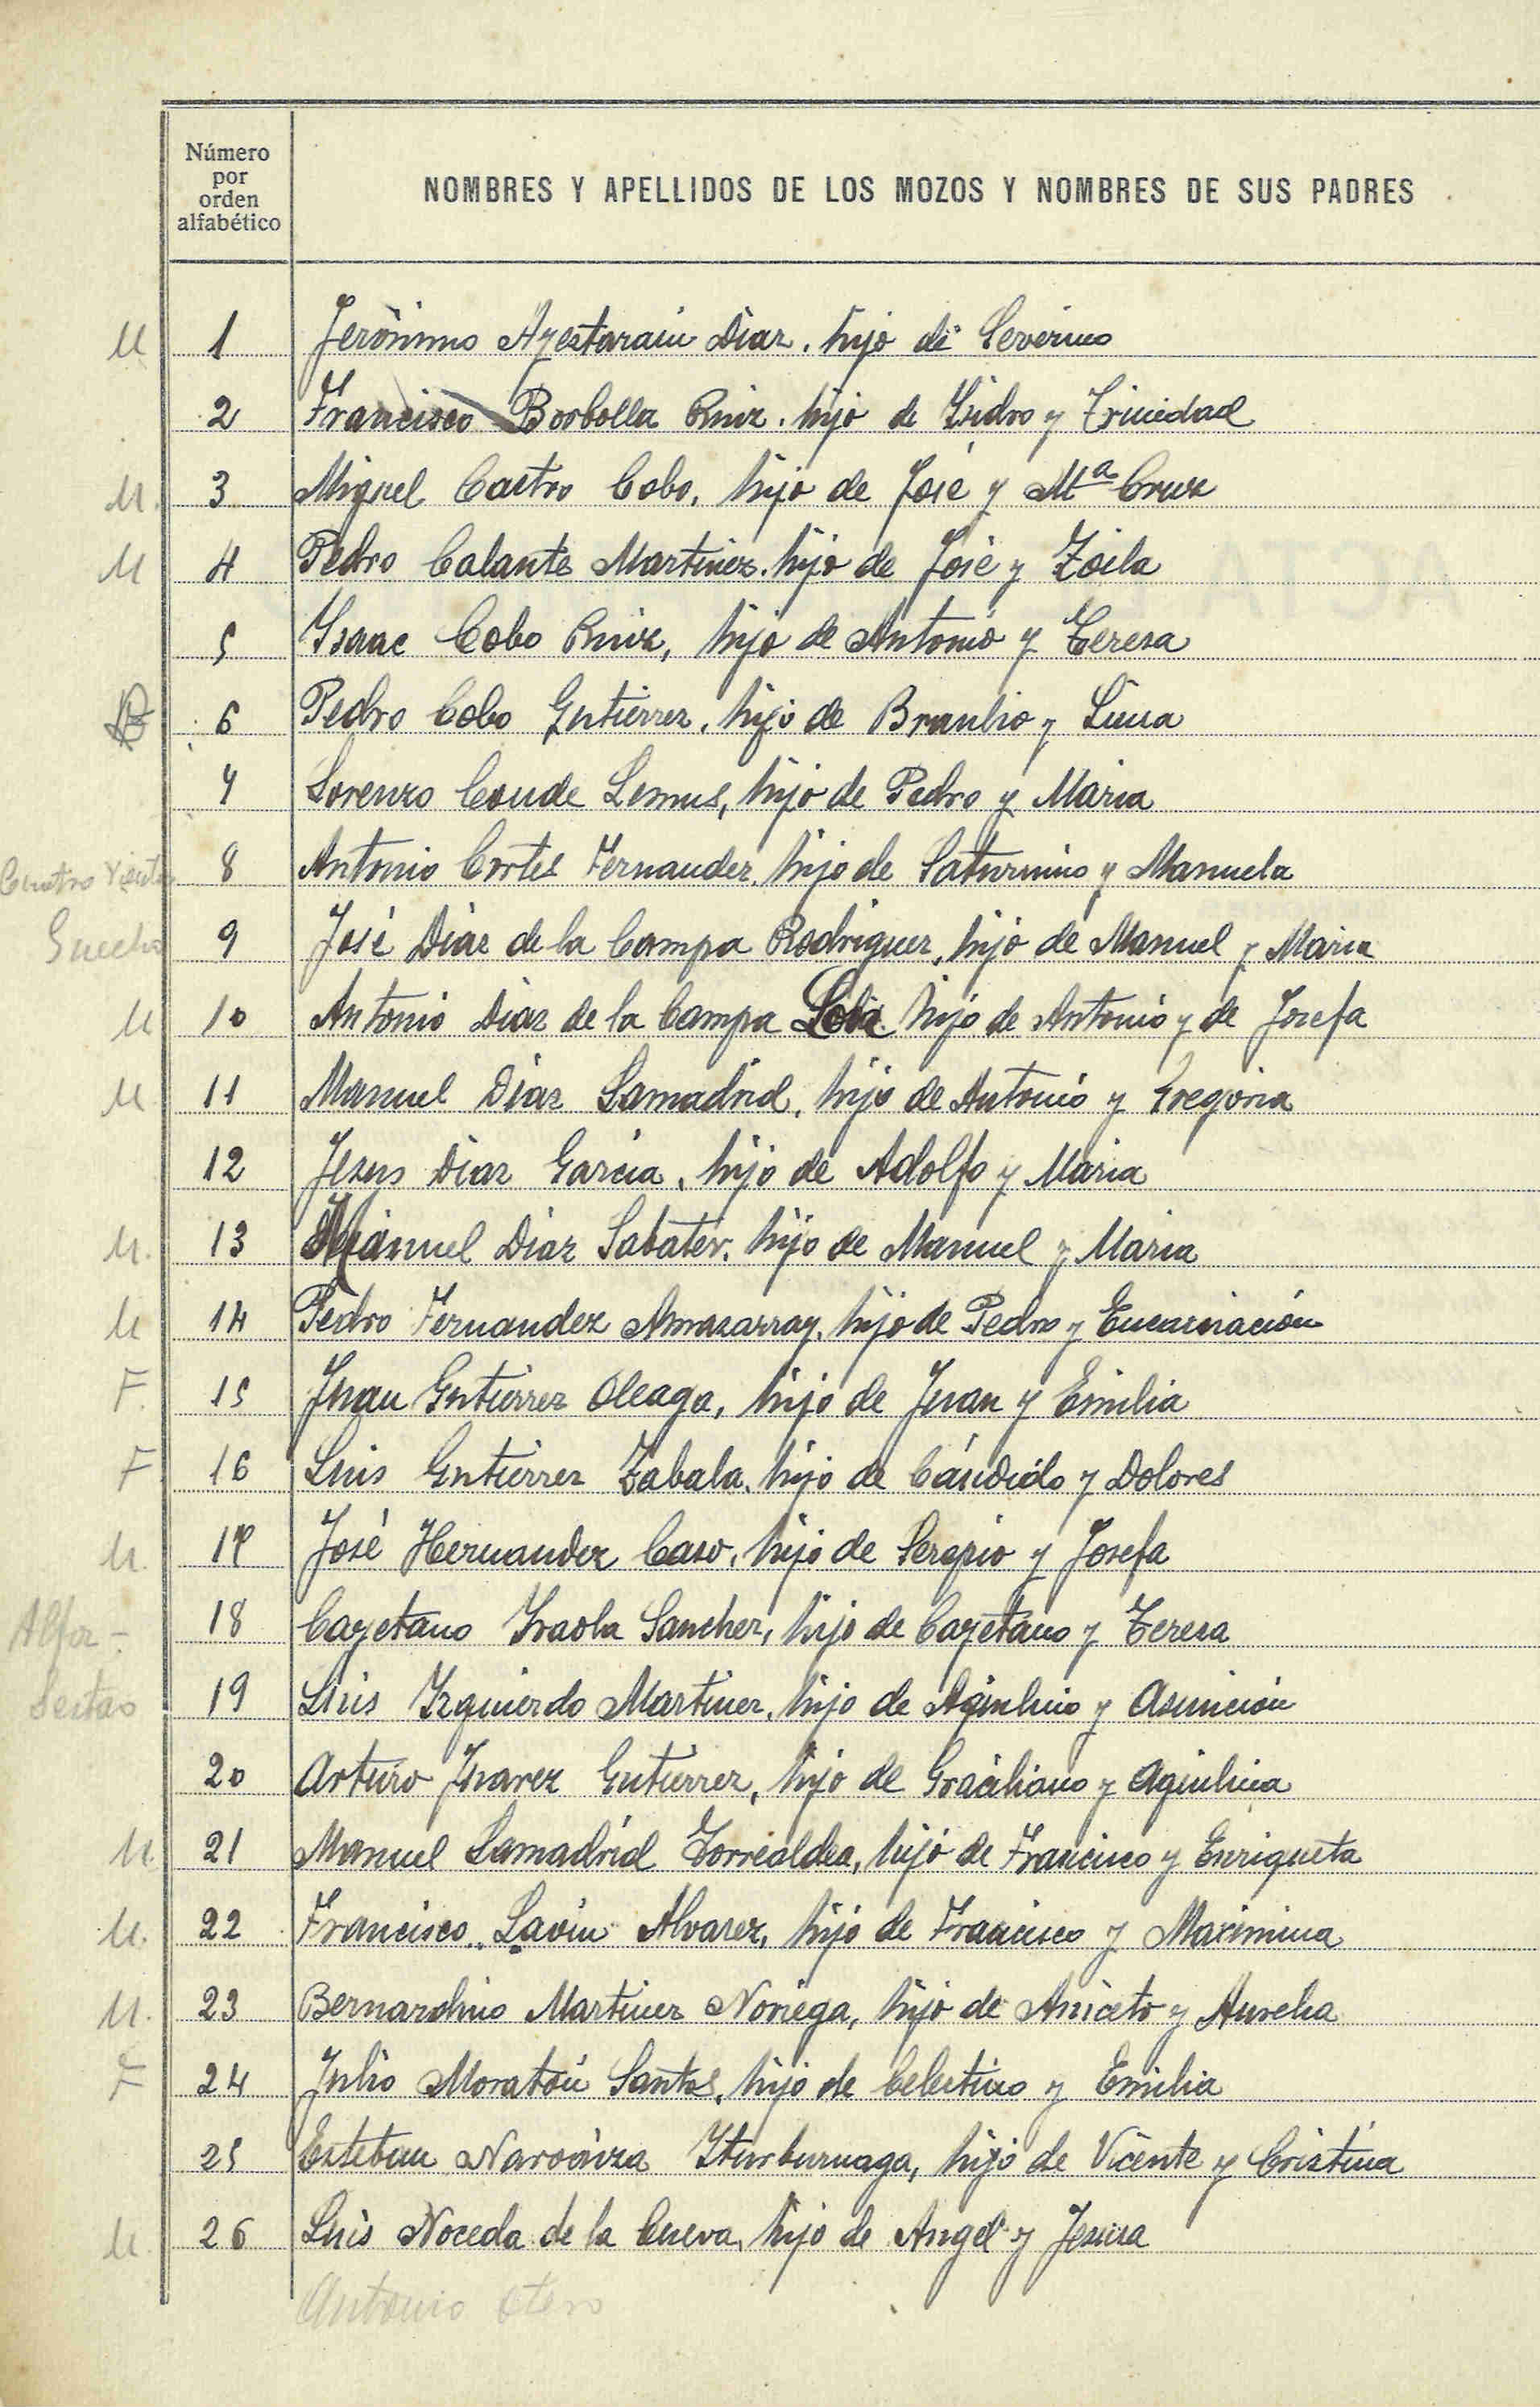 Número
por
orden
alfabético
NOMBRES Y APELLIDOS DE LOS MOZOS Y NOMBRES DE SUS PADRES
U 1 Jerónimo Ayestarain Diaz, hijo de Severino
2 Francisco Borbolla Ruiz, hijo de Ysidro y Trinidad
U. 3 Miguel Castro Cobo, hijo de José y Mª Cruz
U 4 Pedro Calante Martinez, hijo de José y Zoila
5 Ysaac Cobo Ruiz, hijo de Antonio y Teresa
B 6 Pedro Cobo Gutierrez, hijo de Braulio y Luisa
7 Lorenzo Conde Lemus, hijo de Pedro y Maria
Cuatro Vientos 8 Antonio Cortes Fernandez, hijo de Saturnino y Manuela
Guecho 9 José Diaz de la Campa Rodriguez, hijo de Manuel y Maria
U 10 Antonio Diaz de la Campa hijo de Antonio y de Josefa
U 11 Manuel Diaz Lamadrid, hijo de Antonio y Gregoria
12 Jesus Diaz Garcia, hijo de Adolfo y Maria
U. 13 Manuel Diaz Sabater, hijo de Manuel y Maria
U 14 Pedro Fernandez Amasarray, hijo de Pedro y Encarnación
F. 15 Juan Gutierrez Oleaga, hijo de Juan y Emilia
F 16 Luis Gutierrez Zabala, hijo de Cándido y Dolores
U. 17 José Hernandez Caso, hijo de Sergio y Josefa
18 Cayetano Yraola Sanchez, hijo de Cayetano y Teresa
Sestao 19 Luis Yzquierdo Martinez, hijo de Aquilino y Asunción
20 Arturo Juarez Gutierrez, hijo de Graciliano y Aquilina
U. 21 Manuel Lamadrid Torrealdea, hijo de Francisco y Enriqueta
U. 22 Francisco Lavin Alvarez, hijo de Francisco y Maximina
U. 23 Bernardino Martinez Noriega, hijo de Aniceto y Aurelia
F 24 Julio Moratón Santos, hijo de Celestino y Emilia
25 Esteban Naroaiza Yturburuaga, hijo de Vicente y Cristina
U. 26 Luis Noceda de la Cueva, hijo de Angel y Jesusa
Antonio Otero